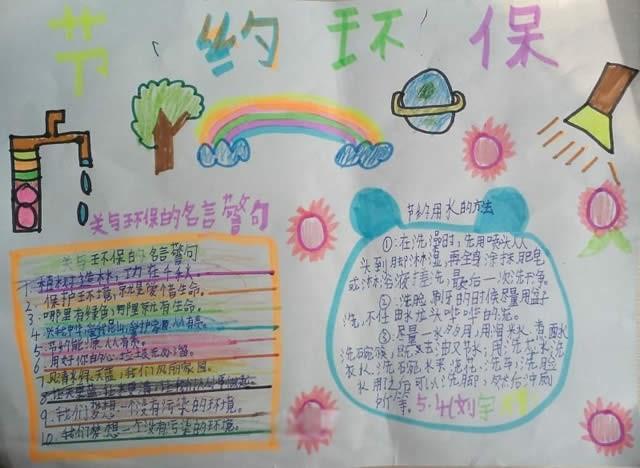 节约环保
关与环保的名言警句
关与环保的名言警句
1. 植树造林,功在千秋。
2. 保护环境,就是爱惜生命。
3. 哪里有绿色,哪里就有生命。
5. 节约能源人人有责。
6. 用好你的心,垃圾
7. 天蓝,我们
9. 我们梦想一个没有污染的环境。
10. 我们梦想一个没有污染的环境。
节约用水的方法
①:在洗澡时,先用喷头从
头到脚淋湿,再全身涂抹肥皂
或淋浴液搓洗,最后一次洗干净。
②:洗脸、刷牙的时候尽量用盆子
洗,不任由水龙头哗哗的流。
③:尽量一水多用,用淘米水、煮面水
洗碗筷,既去油又节水;用洗菜水洗
衣水、洗碗水来浇花、洗车;洗脸
水用过后可以洗脚,然后冲厕
所等。5.4(刘宇